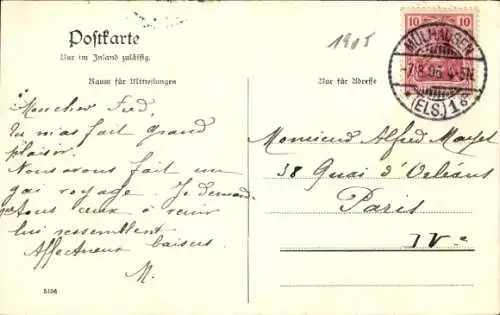 Postkarte
Nur im Inland zulässig.
Raum für Mitteilungen
Nur für Adresse
1905
10 10
MÜLHAUSEN
7.8.05. 4-5N
*(ELS.) 1g
Mon cher Fred,
Tu m'as fait grand
plaisir.
Nous avons fait un
gai voyage. Je demande
que tous ceux à venir
lui ressemblent
Affectueux baisers
M.
Monsieur Alfred Mayet
38 Quai d'Orléans
Paris
IVe
5136